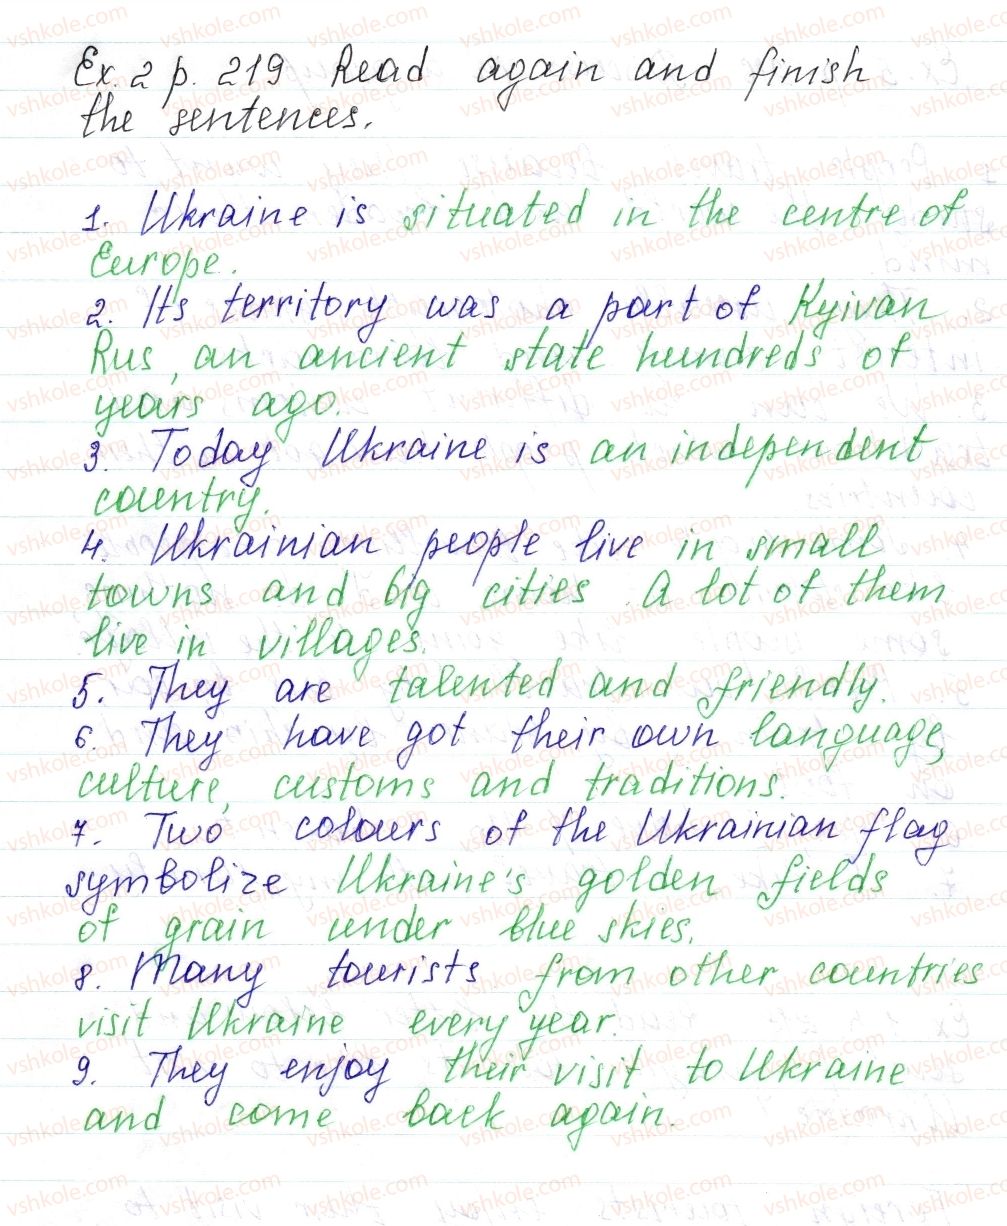 Ex. 2 p. 219 Read again and finish
the sentences.
1. Ukraine is situated in the centre of
Europe.
2. Its territory was a part of Kyivan
Rus, an ancient state hundreds of
years ago.
3. Today Ukraine is an independent
country.
4. Ukrainian people live in small
towns and big cities. A lot of them
live in villages.
5. They are talented and friendly.
6. They have got their own language,
culture, customs and traditions.
7. Two colours of the Ukrainian flag
symbolize Ukraine's golden fields
of grain under blue skies.
8. Many tourists from other countries
visit Ukraine every year.
9. They enjoy their visit to Ukraine
and come back again.